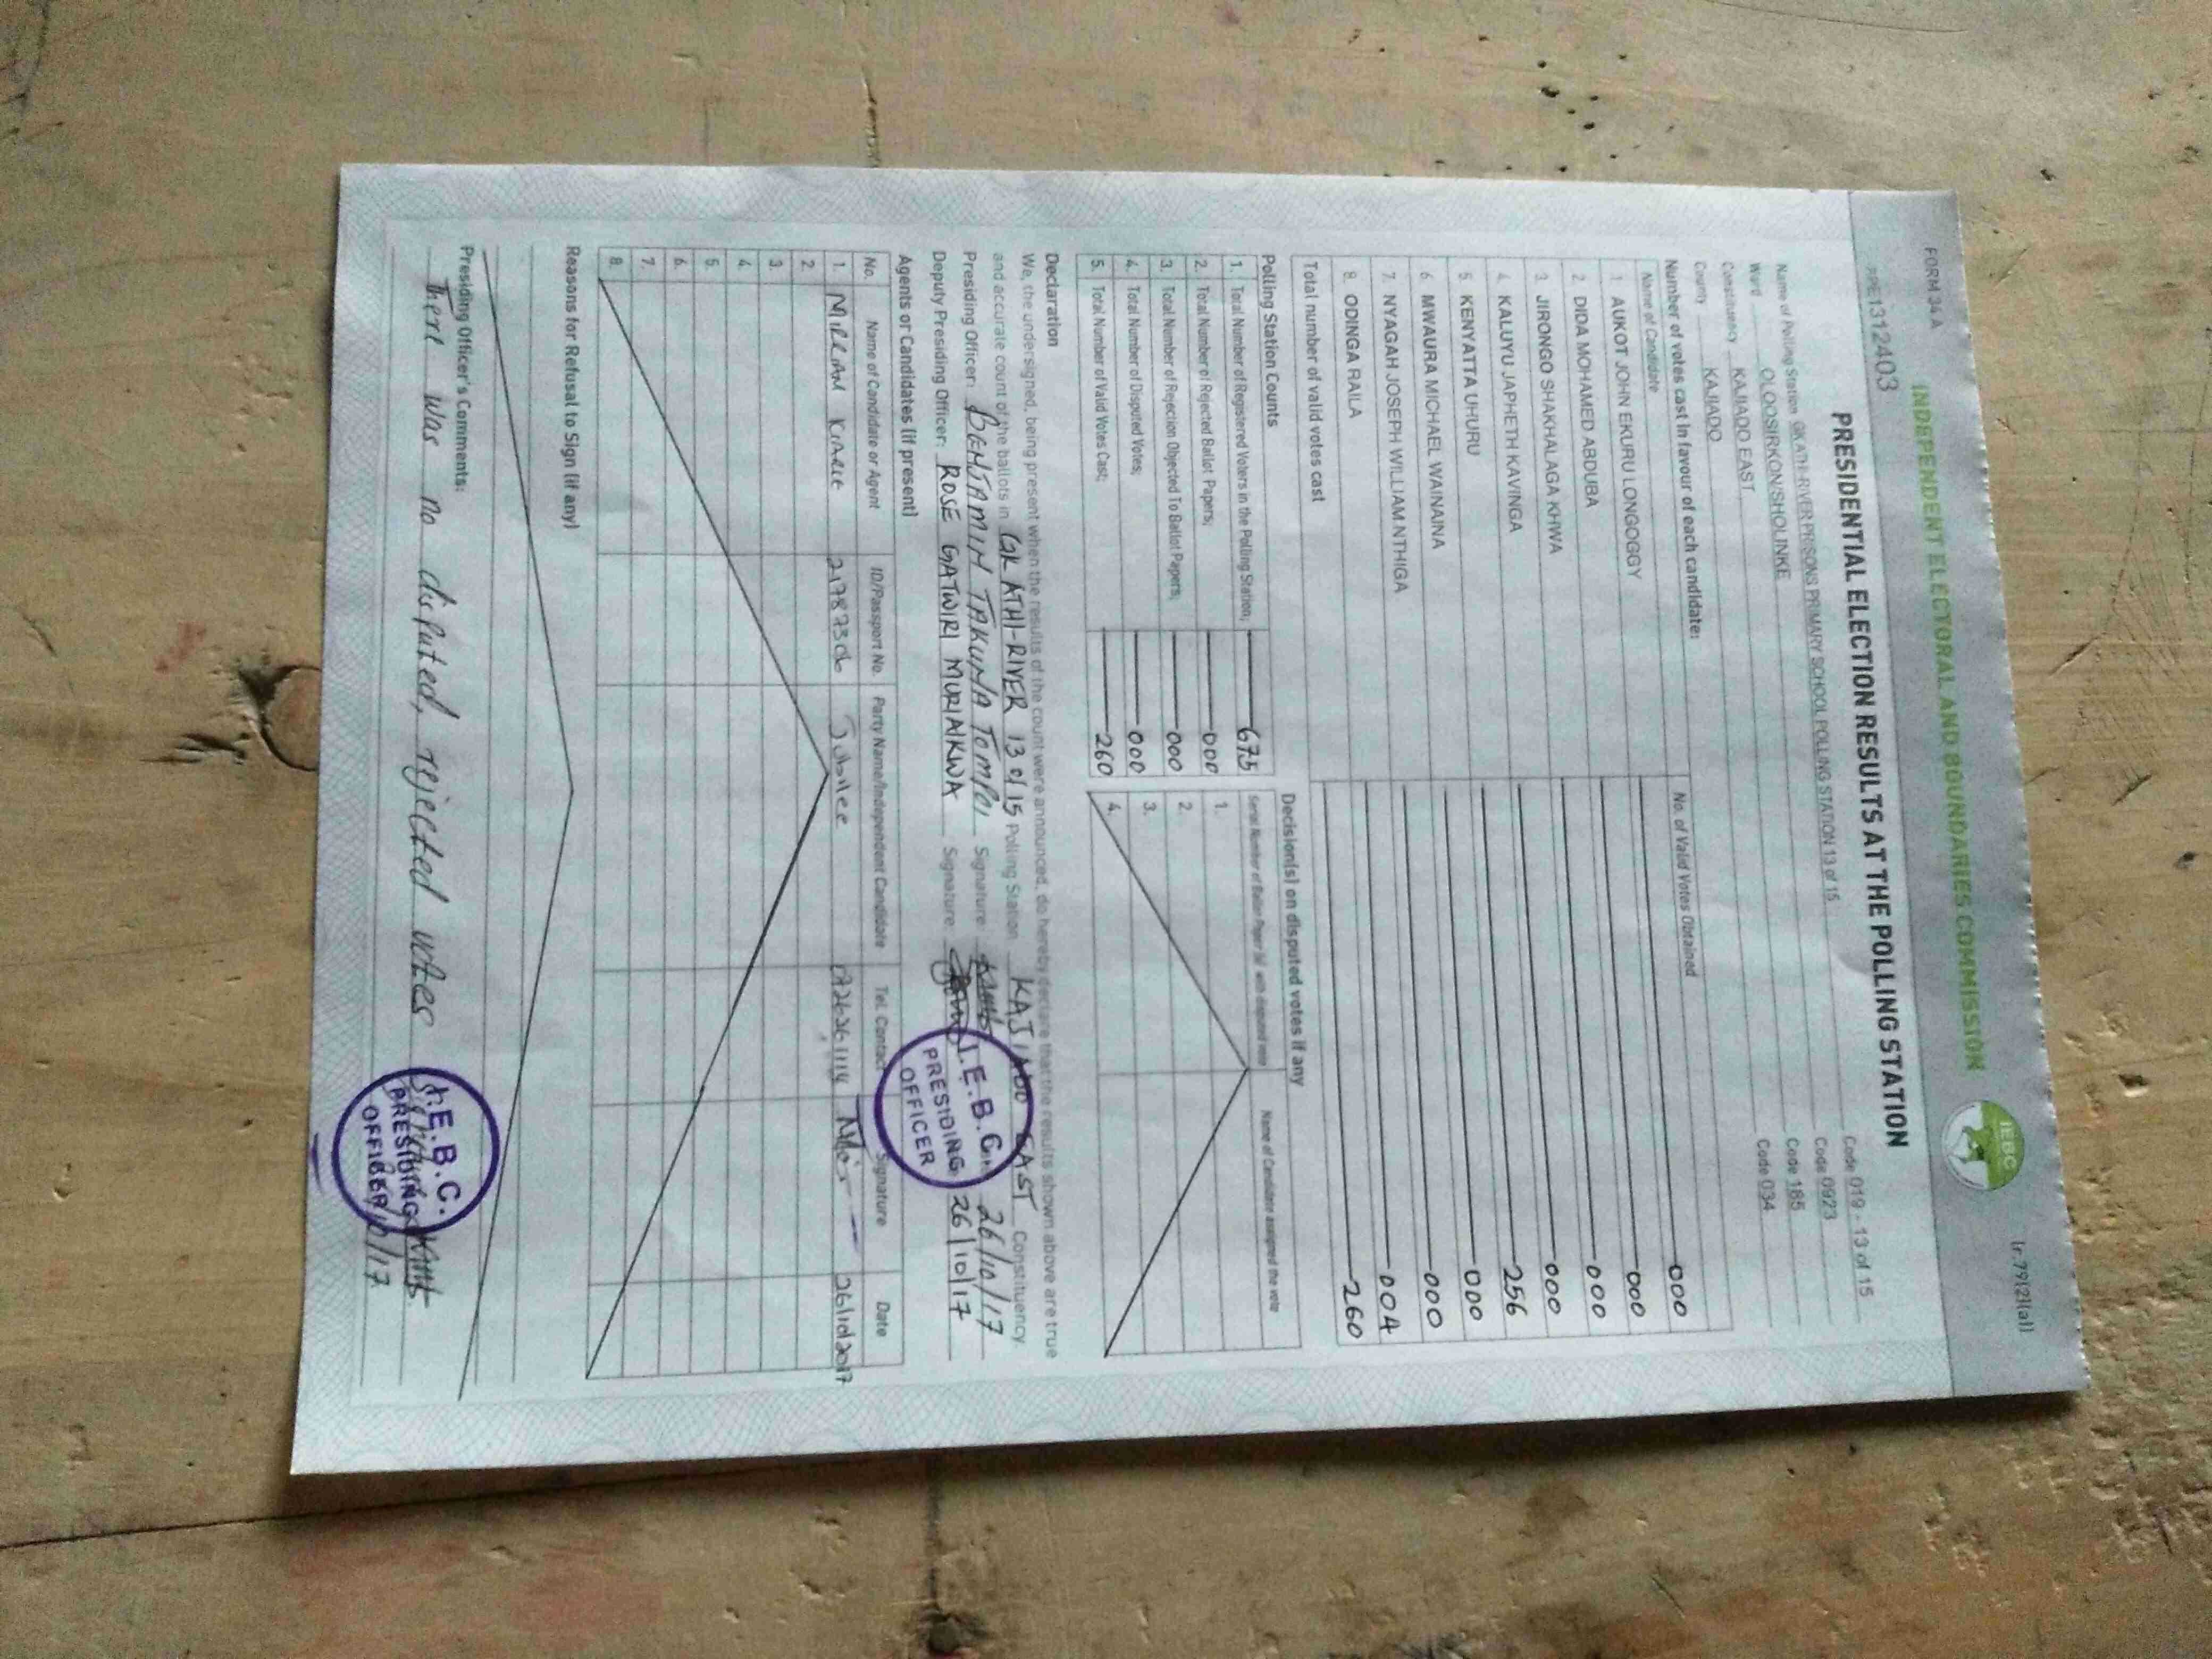 FORM 34 A
(r.79(2)(a))
INDEPENDENT ELECTORAL AND BOUNDARIES COMMISSION
IEBC
PPE1312403
PRESIDENTIAL ELECTION RESULTS AT THE POLLING STATION
Name of Polling Station GK ATHI-RIVER PRISONS PRIMARY SCHOOL POLLING STATION 13 of 15 Code 019 - 13 of 15
Ward OLOOSIRKON/SHOLINKE Code 0923
Constituency KAJIADO EAST Code 185
County KAJIADO Code 034
Number of votes cast in favour of each candidate:
Name of Candidate No. of Valid Votes Obtained
1. AUKOT JOHN EKURU LONGOGGY 000
2. DIDA MOHAMED ABDUBA 000
3. JIRONGO SHAKHALAGA KHWA 000
4. KALUYU JAPHETH KAVINGA 000
5. KENYATTA UHURU 256
6. MWAURA MICHAEL WAINAINA 000
7. NYAGAH JOSEPH WILLIAM NTHIGA 000
8. ODINGA RAILA 004
Total number of valid votes cast 260
Polling Station Counts
1. Total Number of Registered Voters in the Polling Station; 675
2. Total Number of Rejected Ballot Papers; 000
3. Total Number of Rejection Objected To Ballot Papers; 000
4. Total Number of Disputed Votes; 000
5. Total Number of Valid Votes Cast; 260
Decision(s) on disputed votes if any
Serial Number of Ballot Paper (s) with disputed vote Name of Candidate assigned the vote
1.
2.
3.
4.
Declaration
We, the undersigned, being present when the results of the count were announced, do hereby declare that the results shown above are true
and accurate count of the ballots in GK ATHI-RIVER 13 of 15 Polling Station KAJIADO EAST Constituency
Presiding Officer: BENJAMIN TAKUNA TOMPOI Signature 26/10/17
Deputy Presiding Officer: ROSE GATWIRI MURIANKWA Signature 26/10/17
I.E.B.C.
PRESIDING
OFFICER
Agents or Candidates (if present)
No. Name of Candidate or Agent ID/Passport No. Party Name/Independent Candidate Tel. Contact Signature Date
1. 21787306 Jubilee 26/10/2017
2.
3.
4.
5.
6.
7.
8.
Reasons for Refusal to Sign (if any)
Presiding Officer's Comments:
There was no disputed, rejected votes
I.E.B.C.
PRESIDING
OFFICER